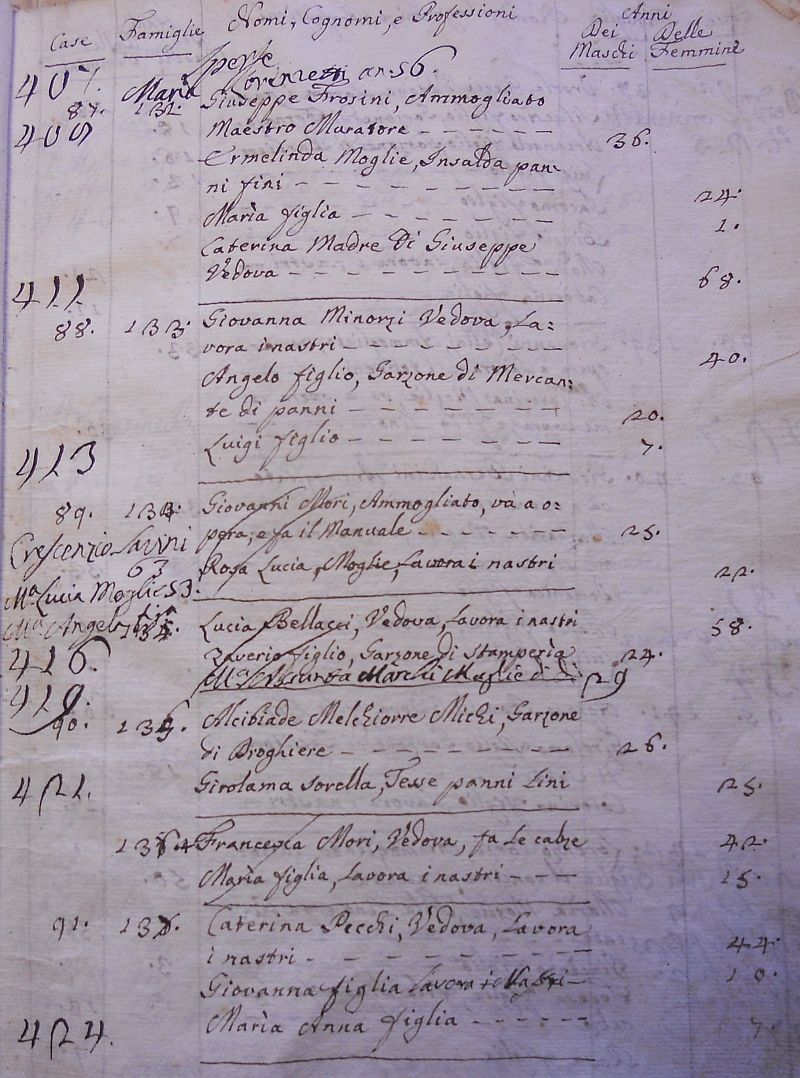 Case Famiglie Nomi, Cognomi, e Professioni Anni
Dei Maschi Delle Femmine
407. Maria an. 56.
87. 132. Giuseppe Frosini, Ammogliato
409 Maestro Muratore 36.
Ermelinda Moglie, Insalda pan-
ni fini 24.
Marìa figlia 1.
Caterina Madre Di Giuseppe
Vedova 68.
411
88. 133. Giovanna Minorzi Vedova, La=
vora i nastri 40.
Angelo figlio, Garzone di Mercan=
te di panni 20.
Luigi figlio 7.
413
89. 134. Giovanni Mori, Ammogliato, và a o=
pera, e fa il Manuale 25.
Crescenzio Lavini
63
Rosa Lucia, Moglie, Lavora i nastri 22.
Ma Lucia Moglie 53.
Ma Angela
Lucia Bellacci, Vedova, Lavora i nastri 58.
416. Zaverio figlio, Garzone di stamperìa 24.
Moglie di 29
419.
90. Alcibiade Melchiorre Michi, Garzone
di Broghiere 26.
421. Girolama sorella, Tesse panni Lini 25.
Francesca Mori, Vedova, fa Le calze 42.
Marìa figlia, Lavora i nastri 15.
91. Caterina Pecchi, Vedova, Lavora
i nastri 44.
Giovanna figlia Lavora i Nastri 10.
424. Marìa Anna figlia 7.